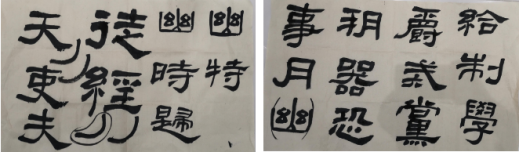 幽特
幽時歸
徒經
天吏夫
給制學
爵武黨
器恐
事月(幽)